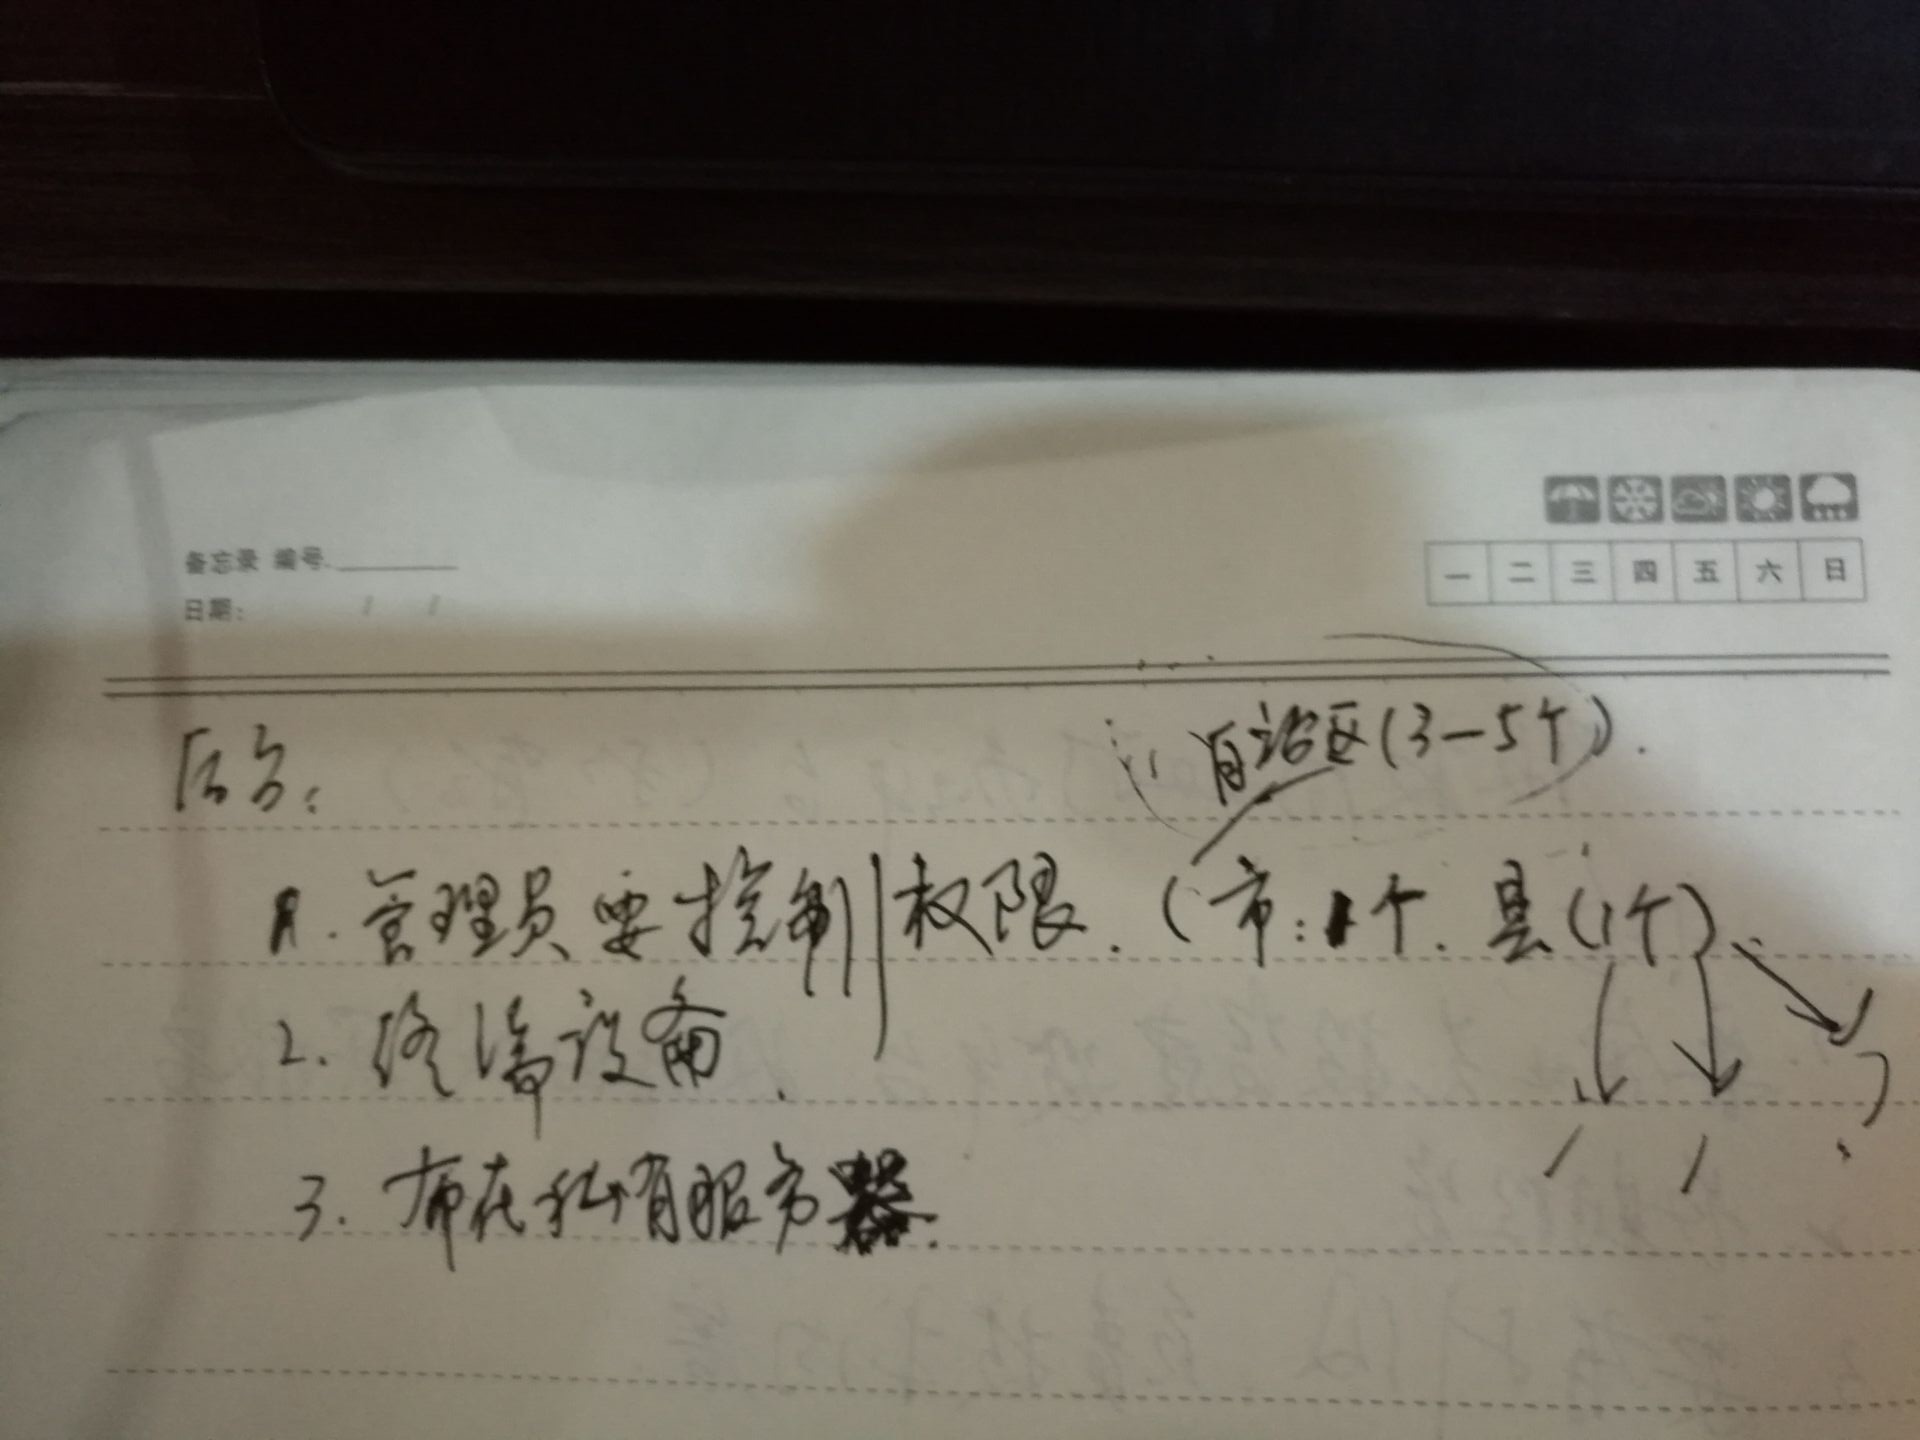 备忘录 编号:
日期: / /
一 二 三 四 五 六 日
后台:
自治区(3-5个).
1. 管理员要控制权限. (市:1个. 县(1个)
2. 终端设备.
3. 布在私有服务器.